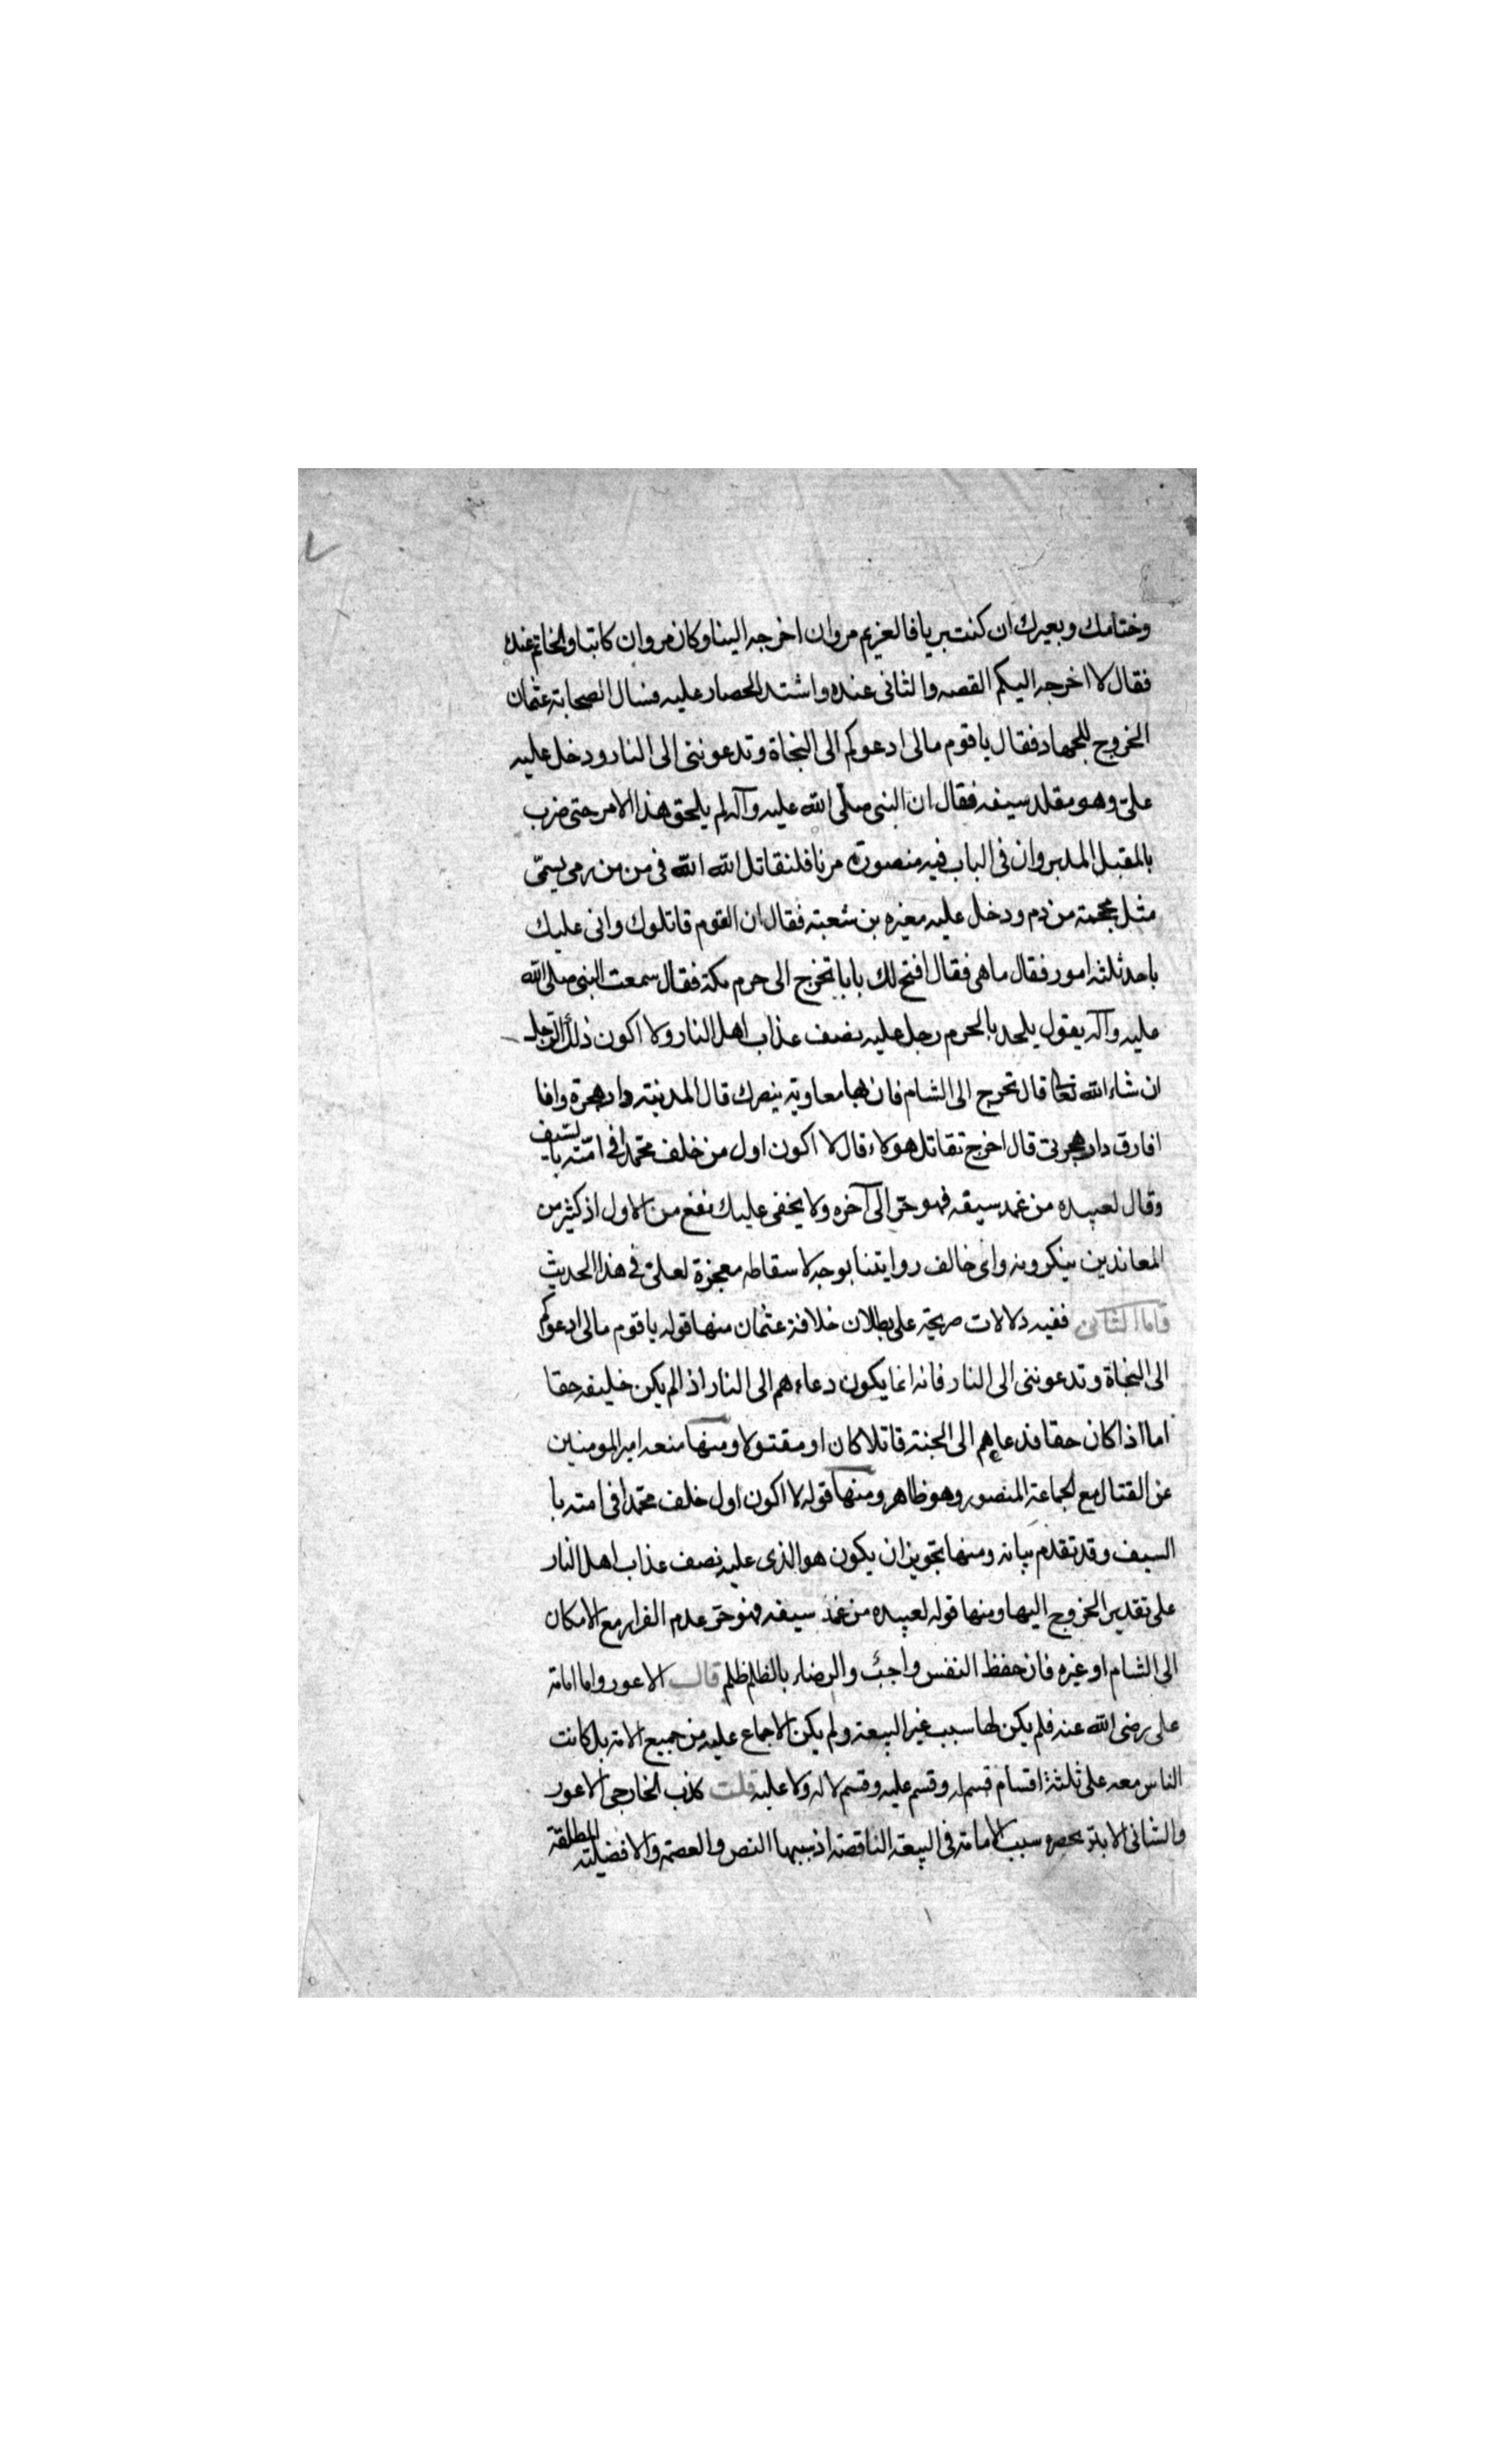 وختامك وبعيرك ان كنت بريا فالغريم مروان اخرجه الينا وكان مروان كاتبا والخاتم عنده
فقال لا اخرجه اليكم القصه والثاني عنده واشتد الحصار عليه فسال الصحابة عثمان
الخروج للجهاد فقال يا قوم مالى ادعوكم الى النجاة وتدعوننى الى النار ودخل عليه
على وهو مقلد سيفه فقال ان النبى صلى الله عليه وآله لم يلحق هذا الامر حتى ضرب
بالمقبل المدبر وان فى الباب فيه منصورة مرنا فلنقاتل الله الله فى من من
مثل محجمة من دم ودخل عليه مغيره بن شعبته فقال ان القوم قاتلوك وانى عليك
باحد ثلثه امور فقال ما هى فقال افتح لك بابا تخرج الى حرم مكة فقال سمعت النبى صلى الله
عليه وآله يقول يلحد بالحرم رجل عليه نصف عذاب اهل النار ولا اكون ذلك الرجل
ان شاء الله تعالى قال تخرج الى الشام فان بها معاويه ينصرك قال المدينه دار هجرة وانا
افارق دار هجرتى قال اخرج تقاتل هولاء قال لا اكون اول من خلف محمدا فى امته بالسيف
وقال لعبيده من غمد سيفه فهو حر الى آخره ولا يخفى عليك نفع من الاول اذ كثير من
المعاندين ينكرونه واى خالف روايتنا بوجه لاسقاطه معجزة لعلى فى هذا الحديث
واما الثانى ففيه دلالات صريحة على بطلان خلافة عثمان منها قوله يا قوم مالى ادعوكم
الى النجاة وتدعوننى الى النار فانه انما يكون دعاءهم الى النار اذ الم يكن خليفه حقا
اما اذا كان حقا فدعاهم الى الجنة قاتلا كان او مقتولا ومنها منعه امير المومنين
عن القتال مع الجماعة المنصور وهو ظاهر ومنها قوله لا اكون اول خلف محمدا فى امته با
السيف وقد تقدم بيانه ومنها تجويز ان يكون هو الذى عليه نصف عذاب اهل النار
على تقدير الخروج اليها ومنها قوله لعبيده من غمد سيفه فهو حر عدم الفرار مع الامكان
الى الشام او غيره فان حفظ النفس واجب والرضاء بالظلم ظلم قال الاعور واما امامة
على رضى الله عنه فلم يكن لها سبب غير البيعة ولم يكن الاجماع عليه من جميع الامة بل كانت
الناس معه على ثلثة اقسام قسم له وقسم عليه وقسم لا له ولا عليه قلت كذب الخارجى الاعور
والشانى الابتر بحصره سبب الامامة فى البيعة الناقصة اذ سببها النص والعصمة والافضلية المطلقة